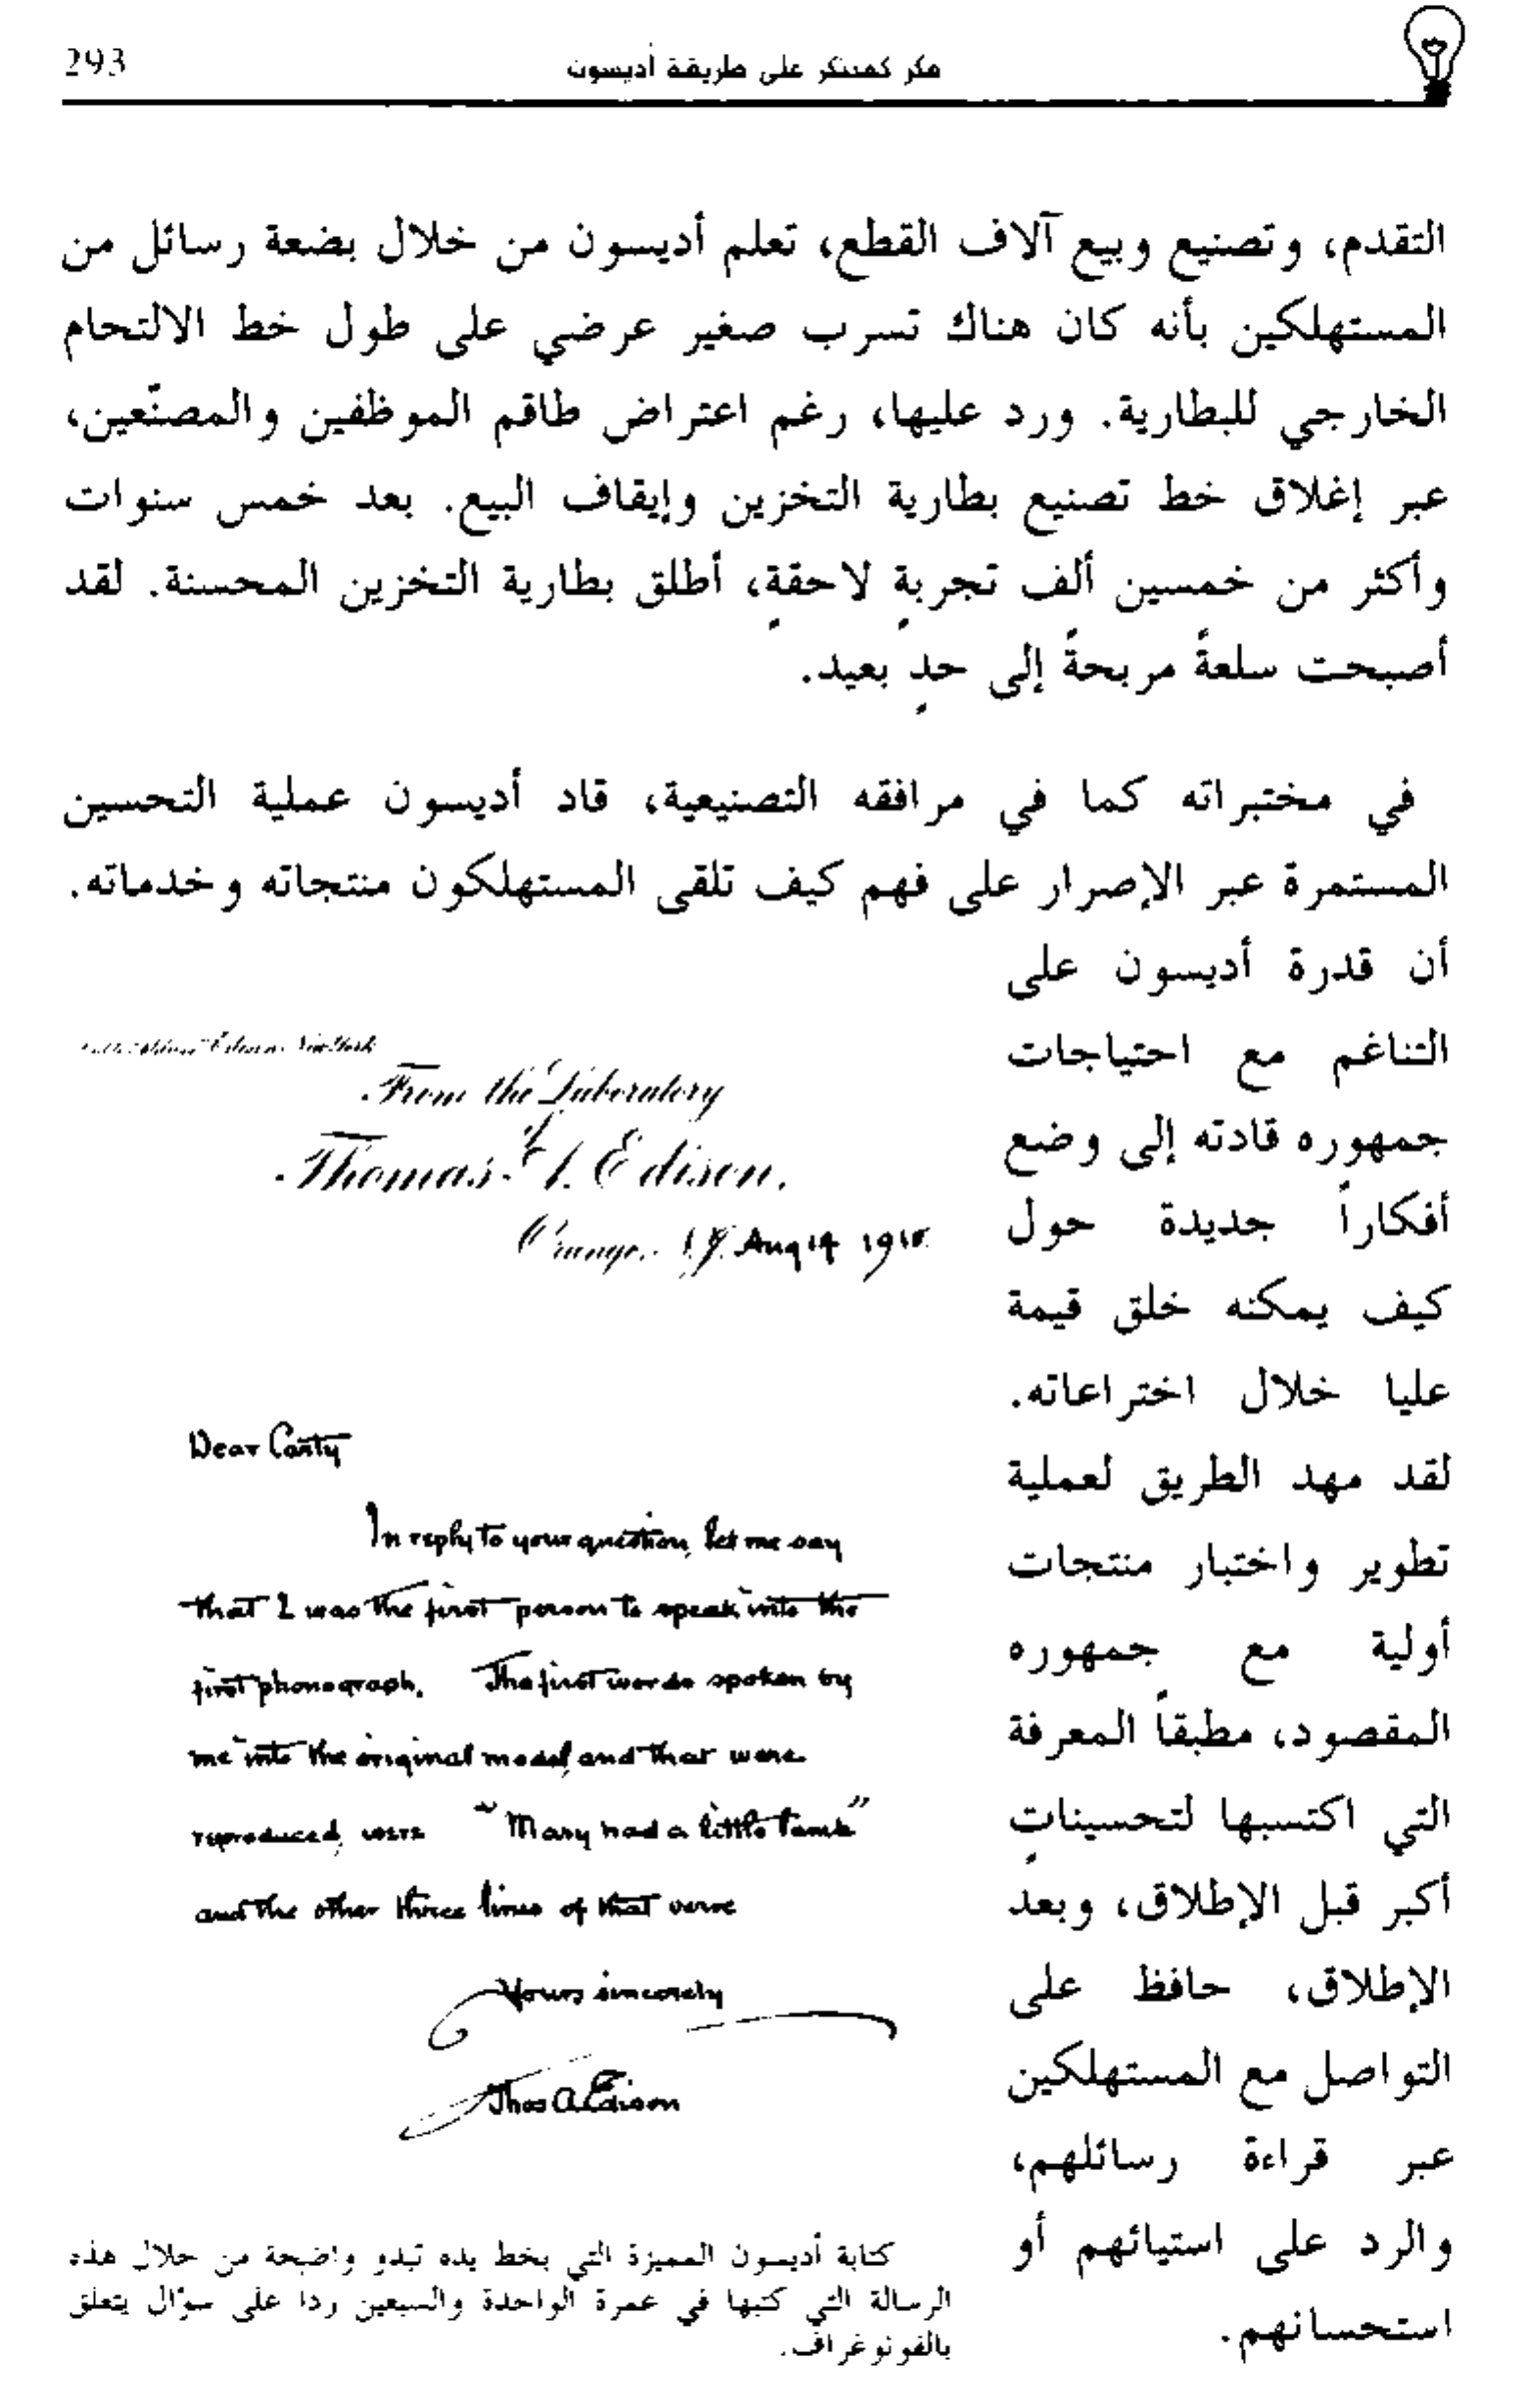 293
فكر كمبتكر على طريقة أديسون
التقدم، وتصنيع وبيع آلاف القطع، تعلم أديسون من خلال بضعة رسائل من
المستهلكين بأنه كان هناك تسرب صغير عرضي على طول خط الالتحام
الخارجي للبطارية. ورد عليها، رغم اعتراض طاقم الموظفين والمصنّعين،
عبر إغلاق خط تصنيع بطارية التخزين وإيقاف البيع. بعد خمس سنوات
وأكثر من خمسين ألف تجربةٍ لاحقةٍ، أطلق بطارية التخزين المحسنة. لقد
أصبحت سلعةً مربحةً إلى حدٍ بعيد.
في مختبراته كما في مرافقه التصنيعية، قاد أديسون عملية التحسين
المستمرة عبر الإصرار على فهم كيف تلقى المستهلكون منتجاته وخدماته.
أن قدرة أديسون على
التناغم مع احتياجات
جمهوره قادته إلى وضع
أفكاراً جديدة حول
كيف يمكنه خلق قيمة
عليا خلال اختراعاته.
لقد مهد الطريق لعملية
تطوير واختبار منتجات
أولية مع جمهوره
المقصود، مطبقاً المعرفة
التي اكتسبها لتحسيناتٍ
أكبر قبل الإطلاق، وبعد
الإطلاق، حافظ على
التواصل مع المستهلكين
عبر قراءة رسائلهم،
والرد على استيائهم أو
استحسانهم.
From the Laboratory
of
Thomas A. Edison.
Orange, N.J. Aug 14
Dear Carty
In reply to your question, let me say
that I was the first person to speak into the
first phonograph. The first words spoken by
me into the original model, and that were
reproduced, were "Mary had a little lamb"
and the other three lines of that verse
Yours sincerely
Thos A Edison
كتابة أديسون المميزة التي بخط يده تبدو واضحة من خلال هذه
الرسالة التي كتبها في عمرة الواحدة والسبعين ردا على سؤال يتعلق
بالفونوغراف.